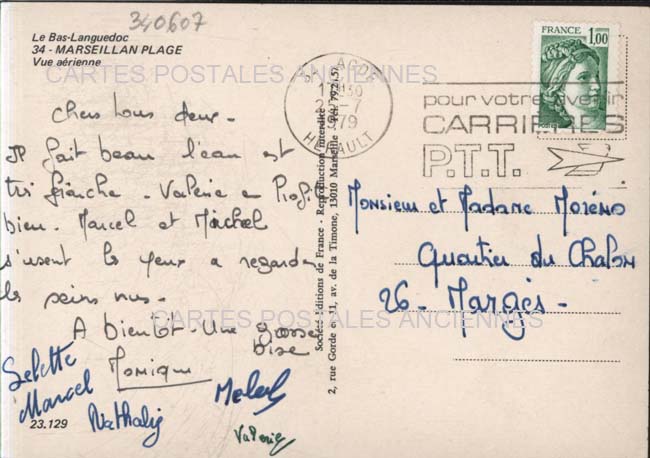 340607
Le Bas-Languedoc
34 - MARSEILLAN PLAGE
Vue aérienne
CARTES POSTALES ANCIENNES
Chers tous deux.
Il fait beau l'eau est
très franche. Valérie en Profite
bien. Marcel et Michel
s'usent les yeux a regarder
les seins nus.
A bientôt. Une grosse
bise
Monique
Marcel
Nathalie
Valerie
23.129
Société Editions de France - Reproduction interdite
2, rue Gorde et 11, av. de la Timone, 13010 Marseille - Tél. 79.21.57
AGDE
1979
HERAULT
FRANCE
1,00
pour votre avenir
CARRIERES
P.T.T.
Monsieur et Madame Moréno
Quartier du Chalon
26 - Margès -
CARTES POSTALES ANCIENNES